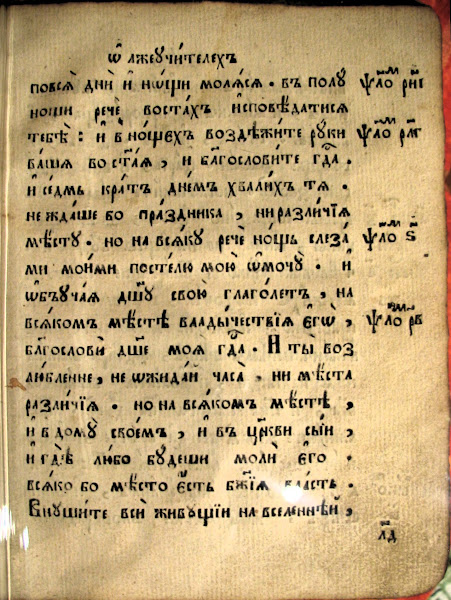 Ѡ҆ лжеꙋчи́телехъ
повсѧ̀ дни̑ и҆ но́щи молѧ́сѧ · въ полꙋ̀ ѱало́м рн҃і
нощи речѐ воста́хъ и҆сповѣ́датисѧ
тебѣ̀ : и҆ в но́щехъ воздѣ́жите рꙋ́ки ѱало́м рл҃г
ва́шѧ во ст҃а́ѧ , и҆ бл҃гослови́те гдⷭ҇а .
и҆ се́дмь кра́тъ дне́мъ хвали́хъ тѧ ·
не жда́ше бо пра́здника , ни разли́чїѧ
мѣ́стꙋ · но на всѧ́кꙋ речѐ но́щь слеза́ ѱало́м ѕ҃
ми мои́ми посте́лю мою̀ ѡ҆мочꙋ̀ · и҆
ѡ҆бꙋча́ѧ дш҃ꙋ свою̀ глаго́летъ , на
всѧ́комъ мѣ́стѣ влады́чествїѧ є҆гѡ̀ , ѱало́м рв҃
бл҃гословѝ дш҃е моѧ̀ гдⷭ҇а · И҆ ты̀ воз
лю́бленне , не ѡ҆жида́й часа̀ , ни мѣ́ста
разли́чїѧ · но на всѧ́комъ мѣ́стѣ ,
и҆ в домꙋ̀ свое́мъ , и҆ въ цр҃кви сы́й ,
и҆ гдѣ̀ лю́бо бꙋ́деши молѝ є҆го̀ ·
всѧ́ко бо мѣ́сто є҆́сть бж҃їѧ вла́сть ·
Внꙋши́те всѝ живꙋ́щїи на вселе́ннѣй ,
л҃д